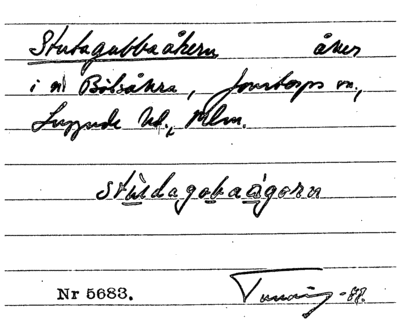 Stutagubbaåkern åker
i n Bölsåkra, Jonstorps sn,
Luggude hd, Mlm.
stùrdagobaágorn
Nr 5683.
-88.